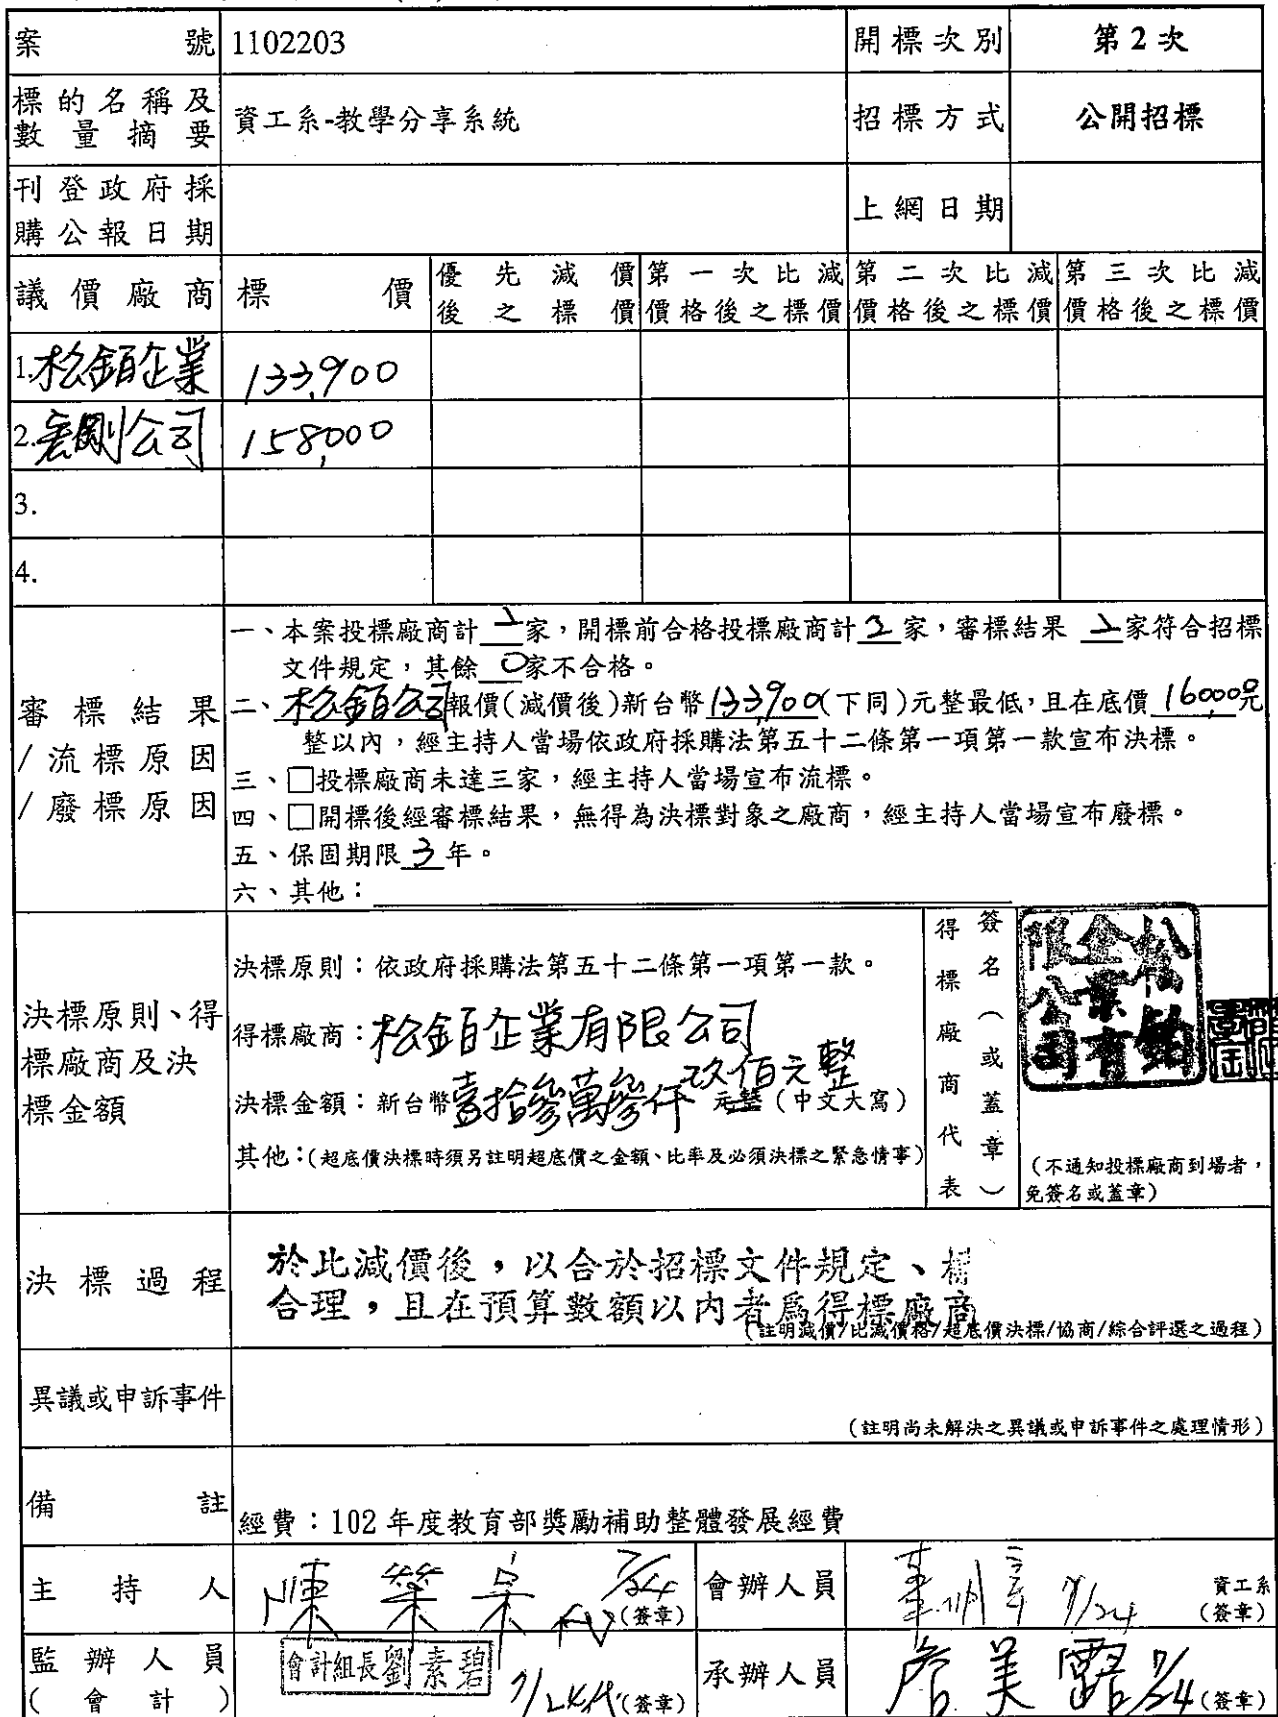 案號 1102203 開標次別 第2次
標的名稱及數量摘要 資工系-教學分享系統 招標方式 公開招標
刊登政府採購公報日期 上網日期
議價廠商 標價 優先減價後之標價 第一次比減價格後之標價 第二次比減價格後之標價 第三次比減價格後之標價
1.松銆企業 133,900
2.宏剛公司 158,000
3.
4.
審標結果/流標原因/廢標原因
一、本案投標廠商計2家,開標前合格投標廠商計2家,審標結果 2家符合招標
文件規定,其餘 0家不合格。
二、松銆公司報價(減價後)新台幣133,900(下同)元整最低,且在底價 160,000元
整以內,經主持人當場依政府採購法第五十二條第一項第一款宣布決標。
三、□投標廠商未達三家,經主持人當場宣布流標。
四、□開標後經審標結果,無得為決標對象之廠商,經主持人當場宣布廢標。
五、保固期限3年。
六、其他:
決標原則、得標廠商及決標金額
決標原則:依政府採購法第五十二條第一項第一款。
得標廠商:松銆企業有限公司
決標金額:新台幣壹拾參萬參仟玖佰元整 元整(中文大寫)
其他:(超底價決標時須另註明超底價之金額、比率及必須決標之緊急情事)
得標廠商代表
簽名(或蓋章)
松銆企業有限公司
(不通知投標廠商到場者,
免簽名或蓋章)
決標過程
於比減價後,以合於招標文件規定、標
合理,且在預算數額以內者為得標廠商
(註明減價/比減價格/超底價決標/協商/綜合評選之過程)
異議或申訴事件
(註明尚未解決之異議或申訴事件之處理情形)
備註 經費:102年度教育部獎勵補助整體發展經費
主持人 陳榮 7/24 代 (簽章) 會辦人員 7/24 資工系 (簽章)
監辦人員(會計) 會計組長劉素碧 7/24 代 (簽章) 承辦人員 詹美露 7/24 (簽章)